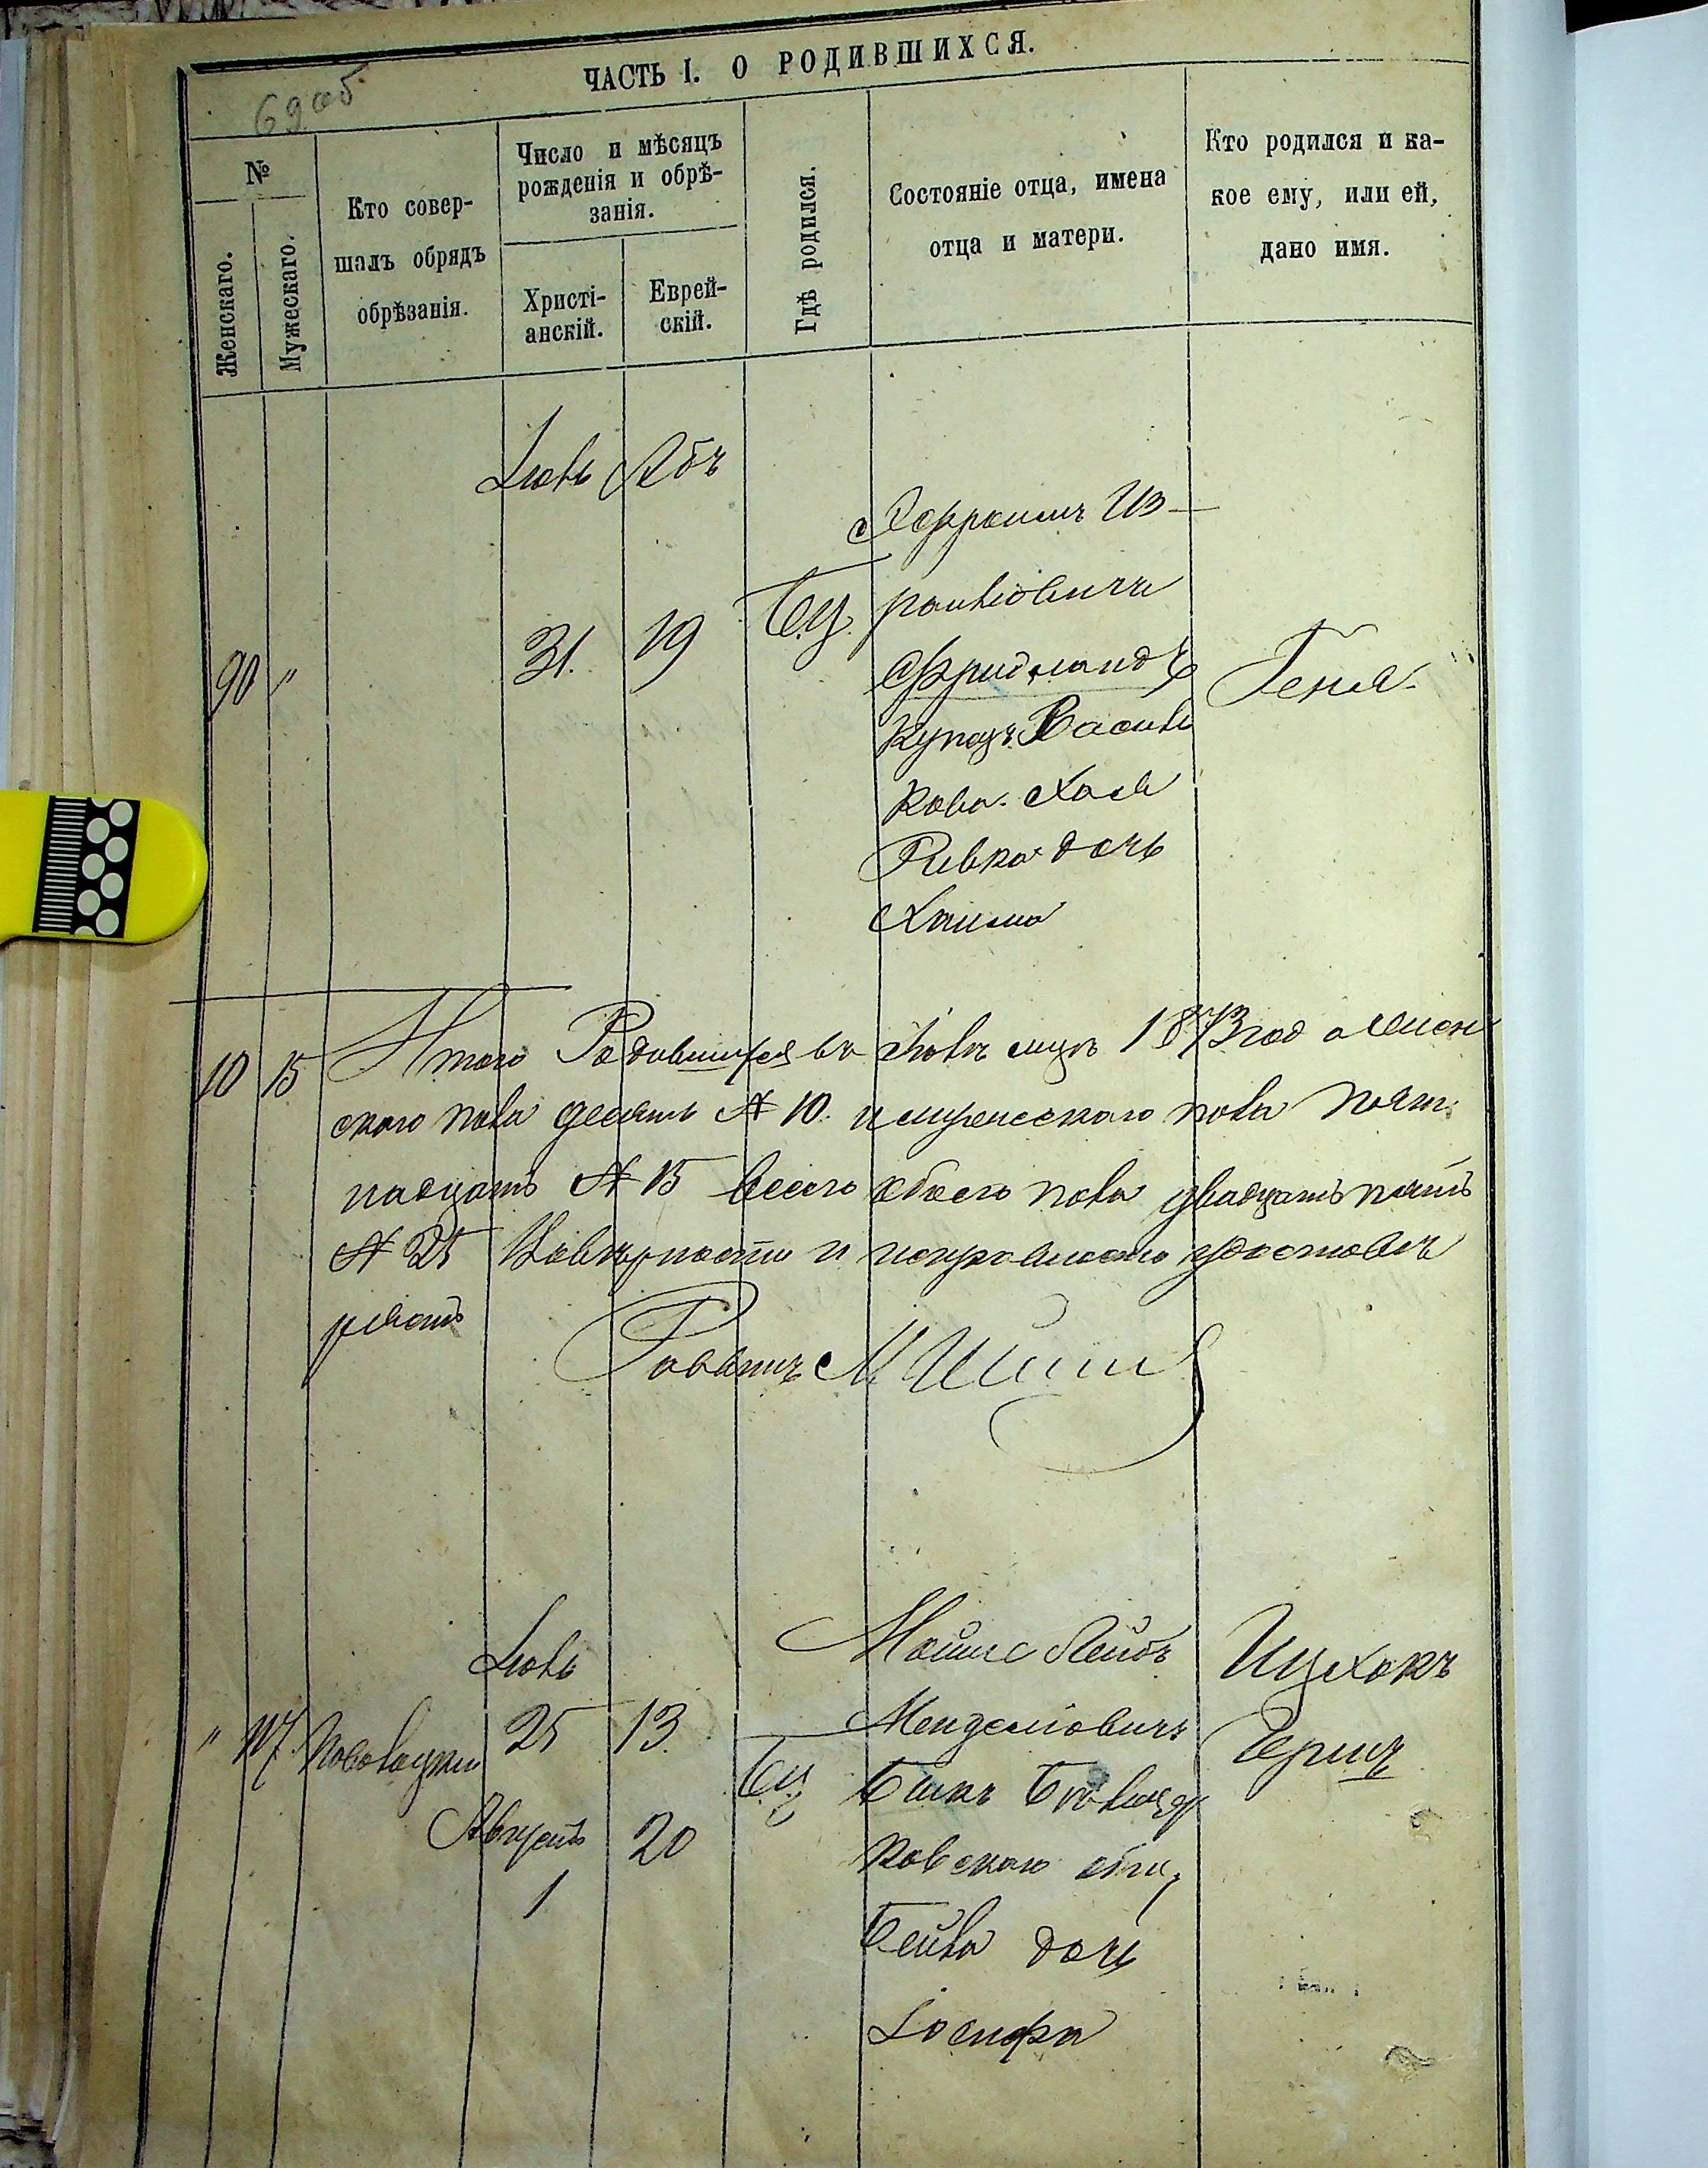 69 об
ЧАСТЬ I. О РОДИВШИХСЯ.
№
Женскаго.
Мужескаго.
Кто совер-
шалъ обрядъ
обрѣзанія.
Число и мѣсяцъ
рожденія и обрѣ-
занія.
Христі-
анскій.
Еврей-
скій.
Гдѣ родился.
Состояніе отца, имена
отца и матери.
Кто родился и ка-
кое ему, или ей,
дано имя.
Іюль Абъ
90 "
31. 19
Б.Ц.
Ефроимъ Из-
раилiовичъ
Фридландъ
Купецъ Василь
кова. Хая
Ривка дочь
Хаима
Геня.
10 15
Итого Родившихся въ Іюлѣ мцѣ 1873 года женс
скаго пола десять № 10. и мужескаго пола пят
надцать № 15 всего обоего пола двадцать пять
№ 25 Въ вѣрности и исправности удостовѣ
ряетъ
Раввинъ М Шт
" 117.
Іюль
25 13.
Августъ 20
1
БЦ
Мойше Лейбъ
Менделiовичъ
Бикъ
ковскаго общ,
Бейла дочь
Іосифа
Ицхокъ
Герцъ